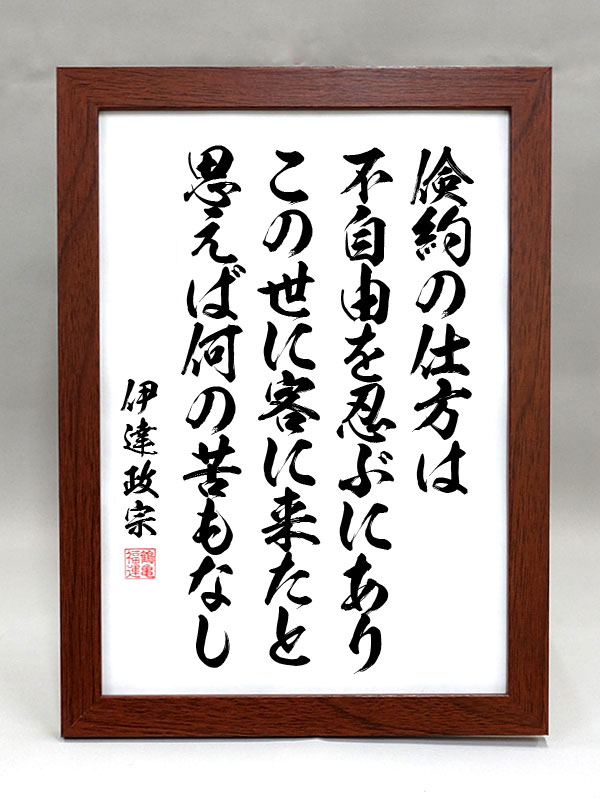 倹約の仕方は
不自由を忍ぶにあり
この世に客に来たと
思えば何の苦もなし
伊達政宗
鶴亀
福運